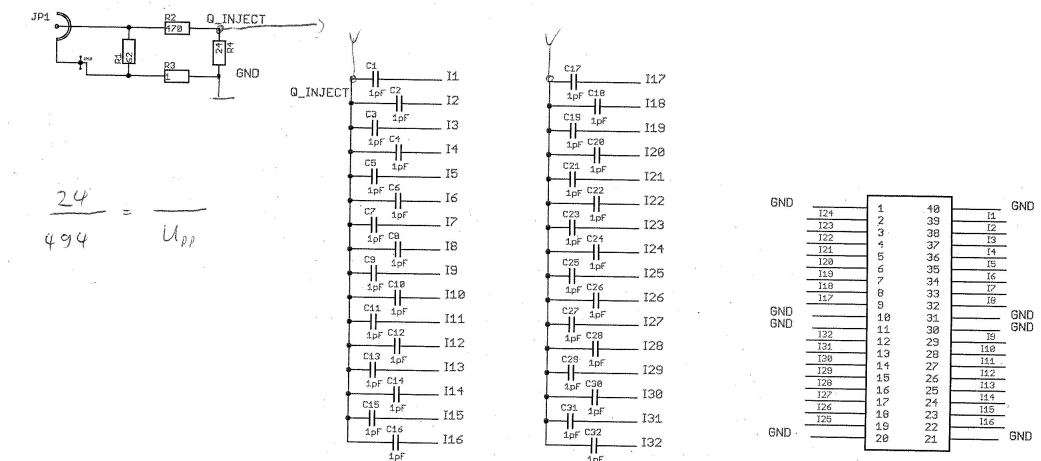 JP1
R2
470
Q_INJECT
R1
62
24
R4
R3
1
GND
24
494
=
Upp
Q_INJECT
C1
1pF
I1
C2
1pF
I2
C3
1pF
I3
C4
1pF
I4
C5
1pF
I5
C6
1pF
I6
C7
1pF
I7
C8
1pF
I8
C9
1pF
I9
C10
1pF
I10
C11
1pF
I11
C12
1pF
I12
C13
1pF
I13
C14
1pF
I14
C15
1pF
I15
C16
1pF
I16
C17
1pF
I17
C18
1pF
I18
C19
1pF
I19
C20
1pF
I20
C21
1pF
I21
C22
1pF
I22
C23
1pF
I23
C24
1pF
I24
C25
1pF
I25
C26
1pF
I26
C27
1pF
I27
C28
1pF
I28
C29
1pF
I29
C30
1pF
I30
C31
1pF
I31
C32
1pF
I32
GND 1 40 GND
I24 2 39 I1
I23 3 38 I2
I22 4 37 I3
I21 5 36 I4
I20 6 35 I5
I19 7 34 I6
I18 8 33 I7
I17 9 32 I8
GND 10 31 GND
GND 11 30 GND
I32 12 29 I9
I31 13 28 I10
I30 14 27 I11
I29 15 26 I12
I28 16 25 I13
I27 17 24 I14
I26 18 23 I15
I25 19 22 I16
GND 20 21 GND